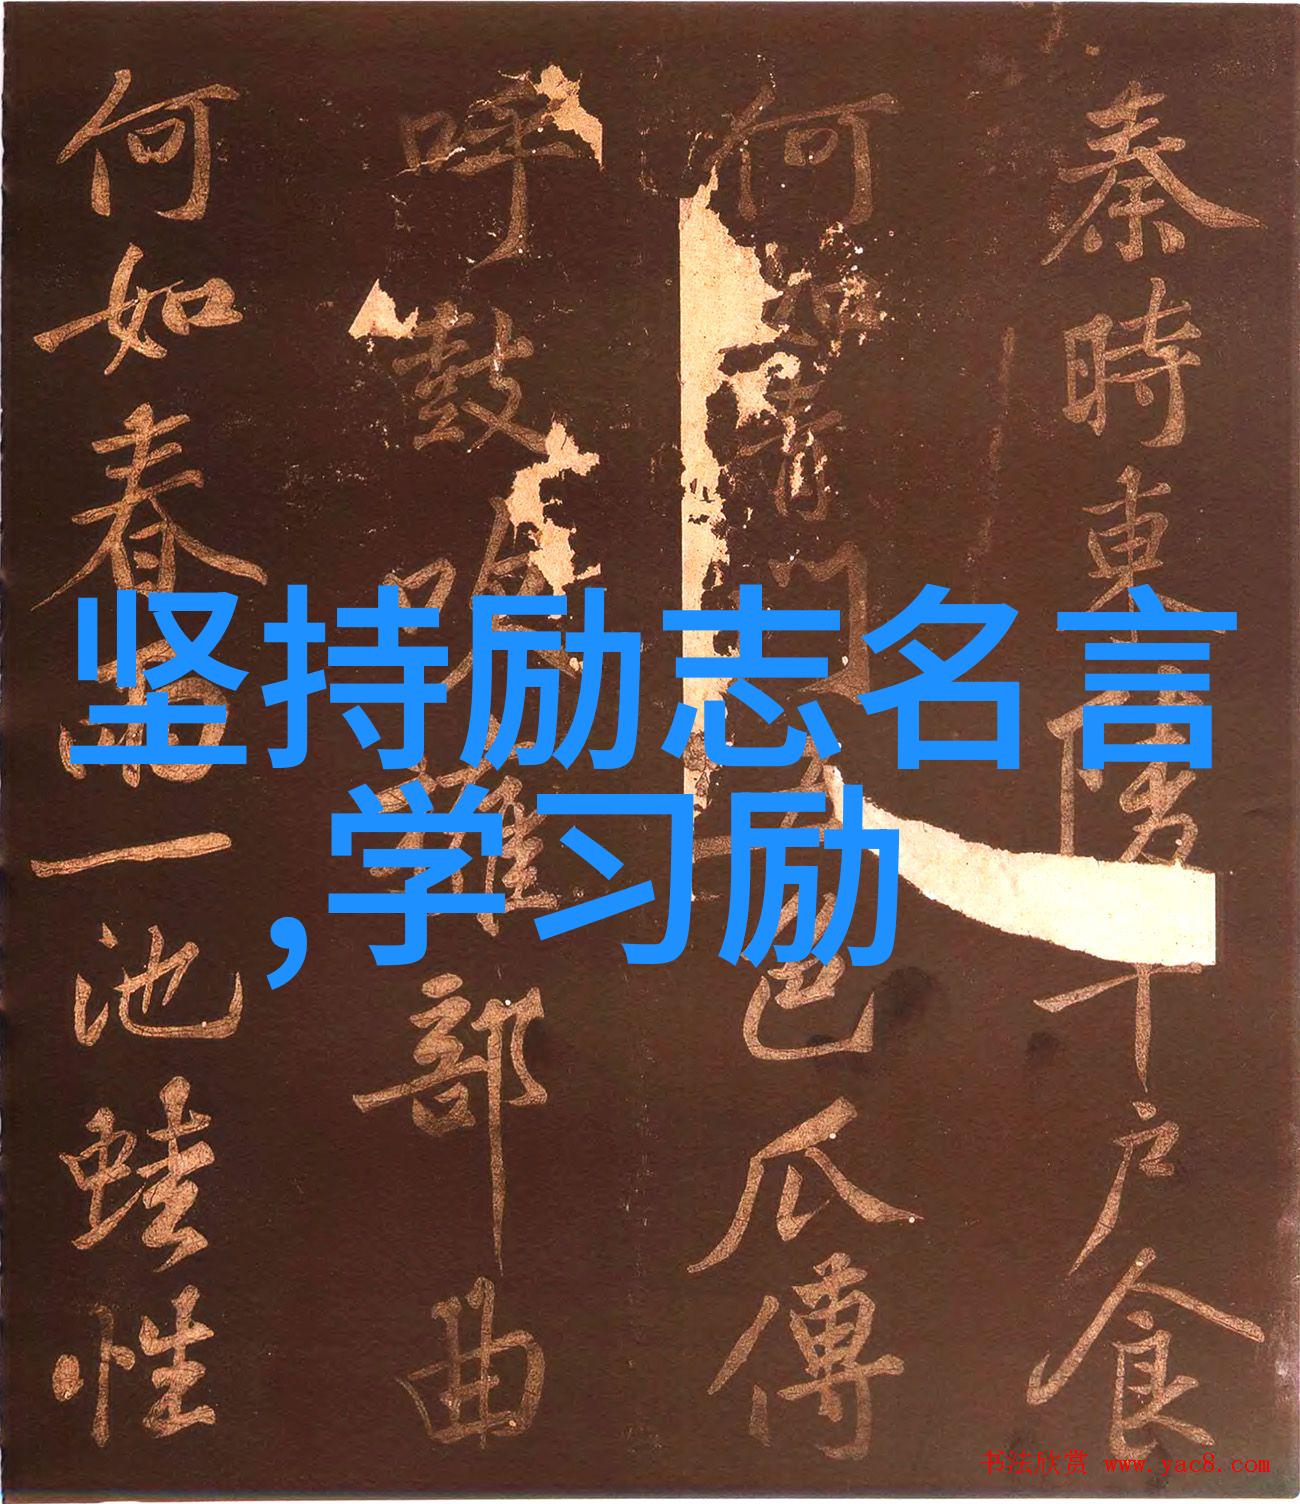 坚持励志名言
,学习励
秦時東陵千戶食
何如青門五色瓜傳
呼鼓吹擁部曲
何如春雨一池蛙性
书法欣赏 www.yac8.com